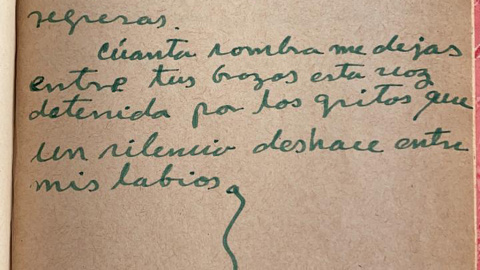 regresas.
cúanta sombra me dejas
entre tus brazos esta voz
detenida por los gritos que
un silencio deshace entre
mis labios.